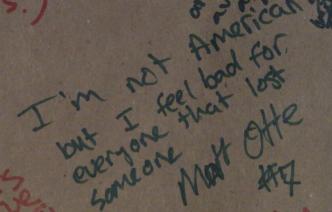 I'm not American
but I feel bad for
everyone that lost
someone
Matt Otte
#7